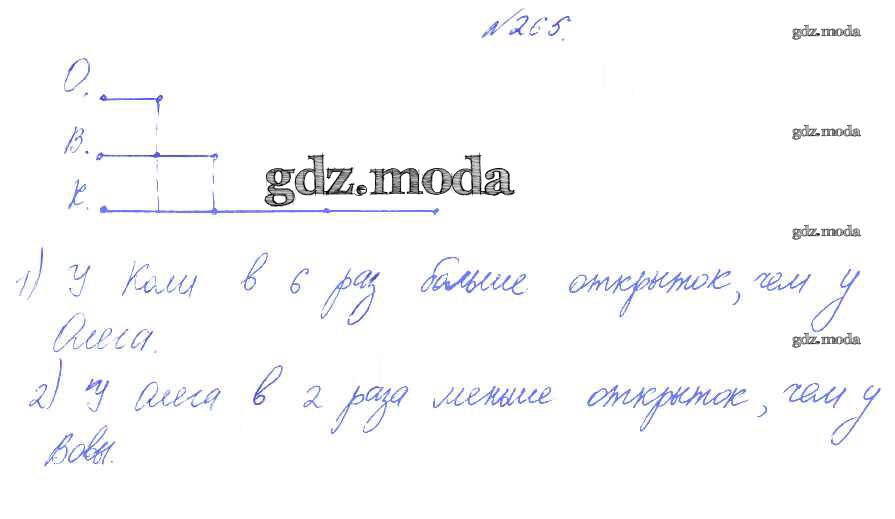 №265.
gdz.moda
О.
gdz.moda
В.
gdz.moda
К.
gdz.moda
1) У Коли в 6 раз больше открыток, чем у
Олега.
gdz.moda
2) У Олега в 2 раза меньше открыток, чем у
Вовы.